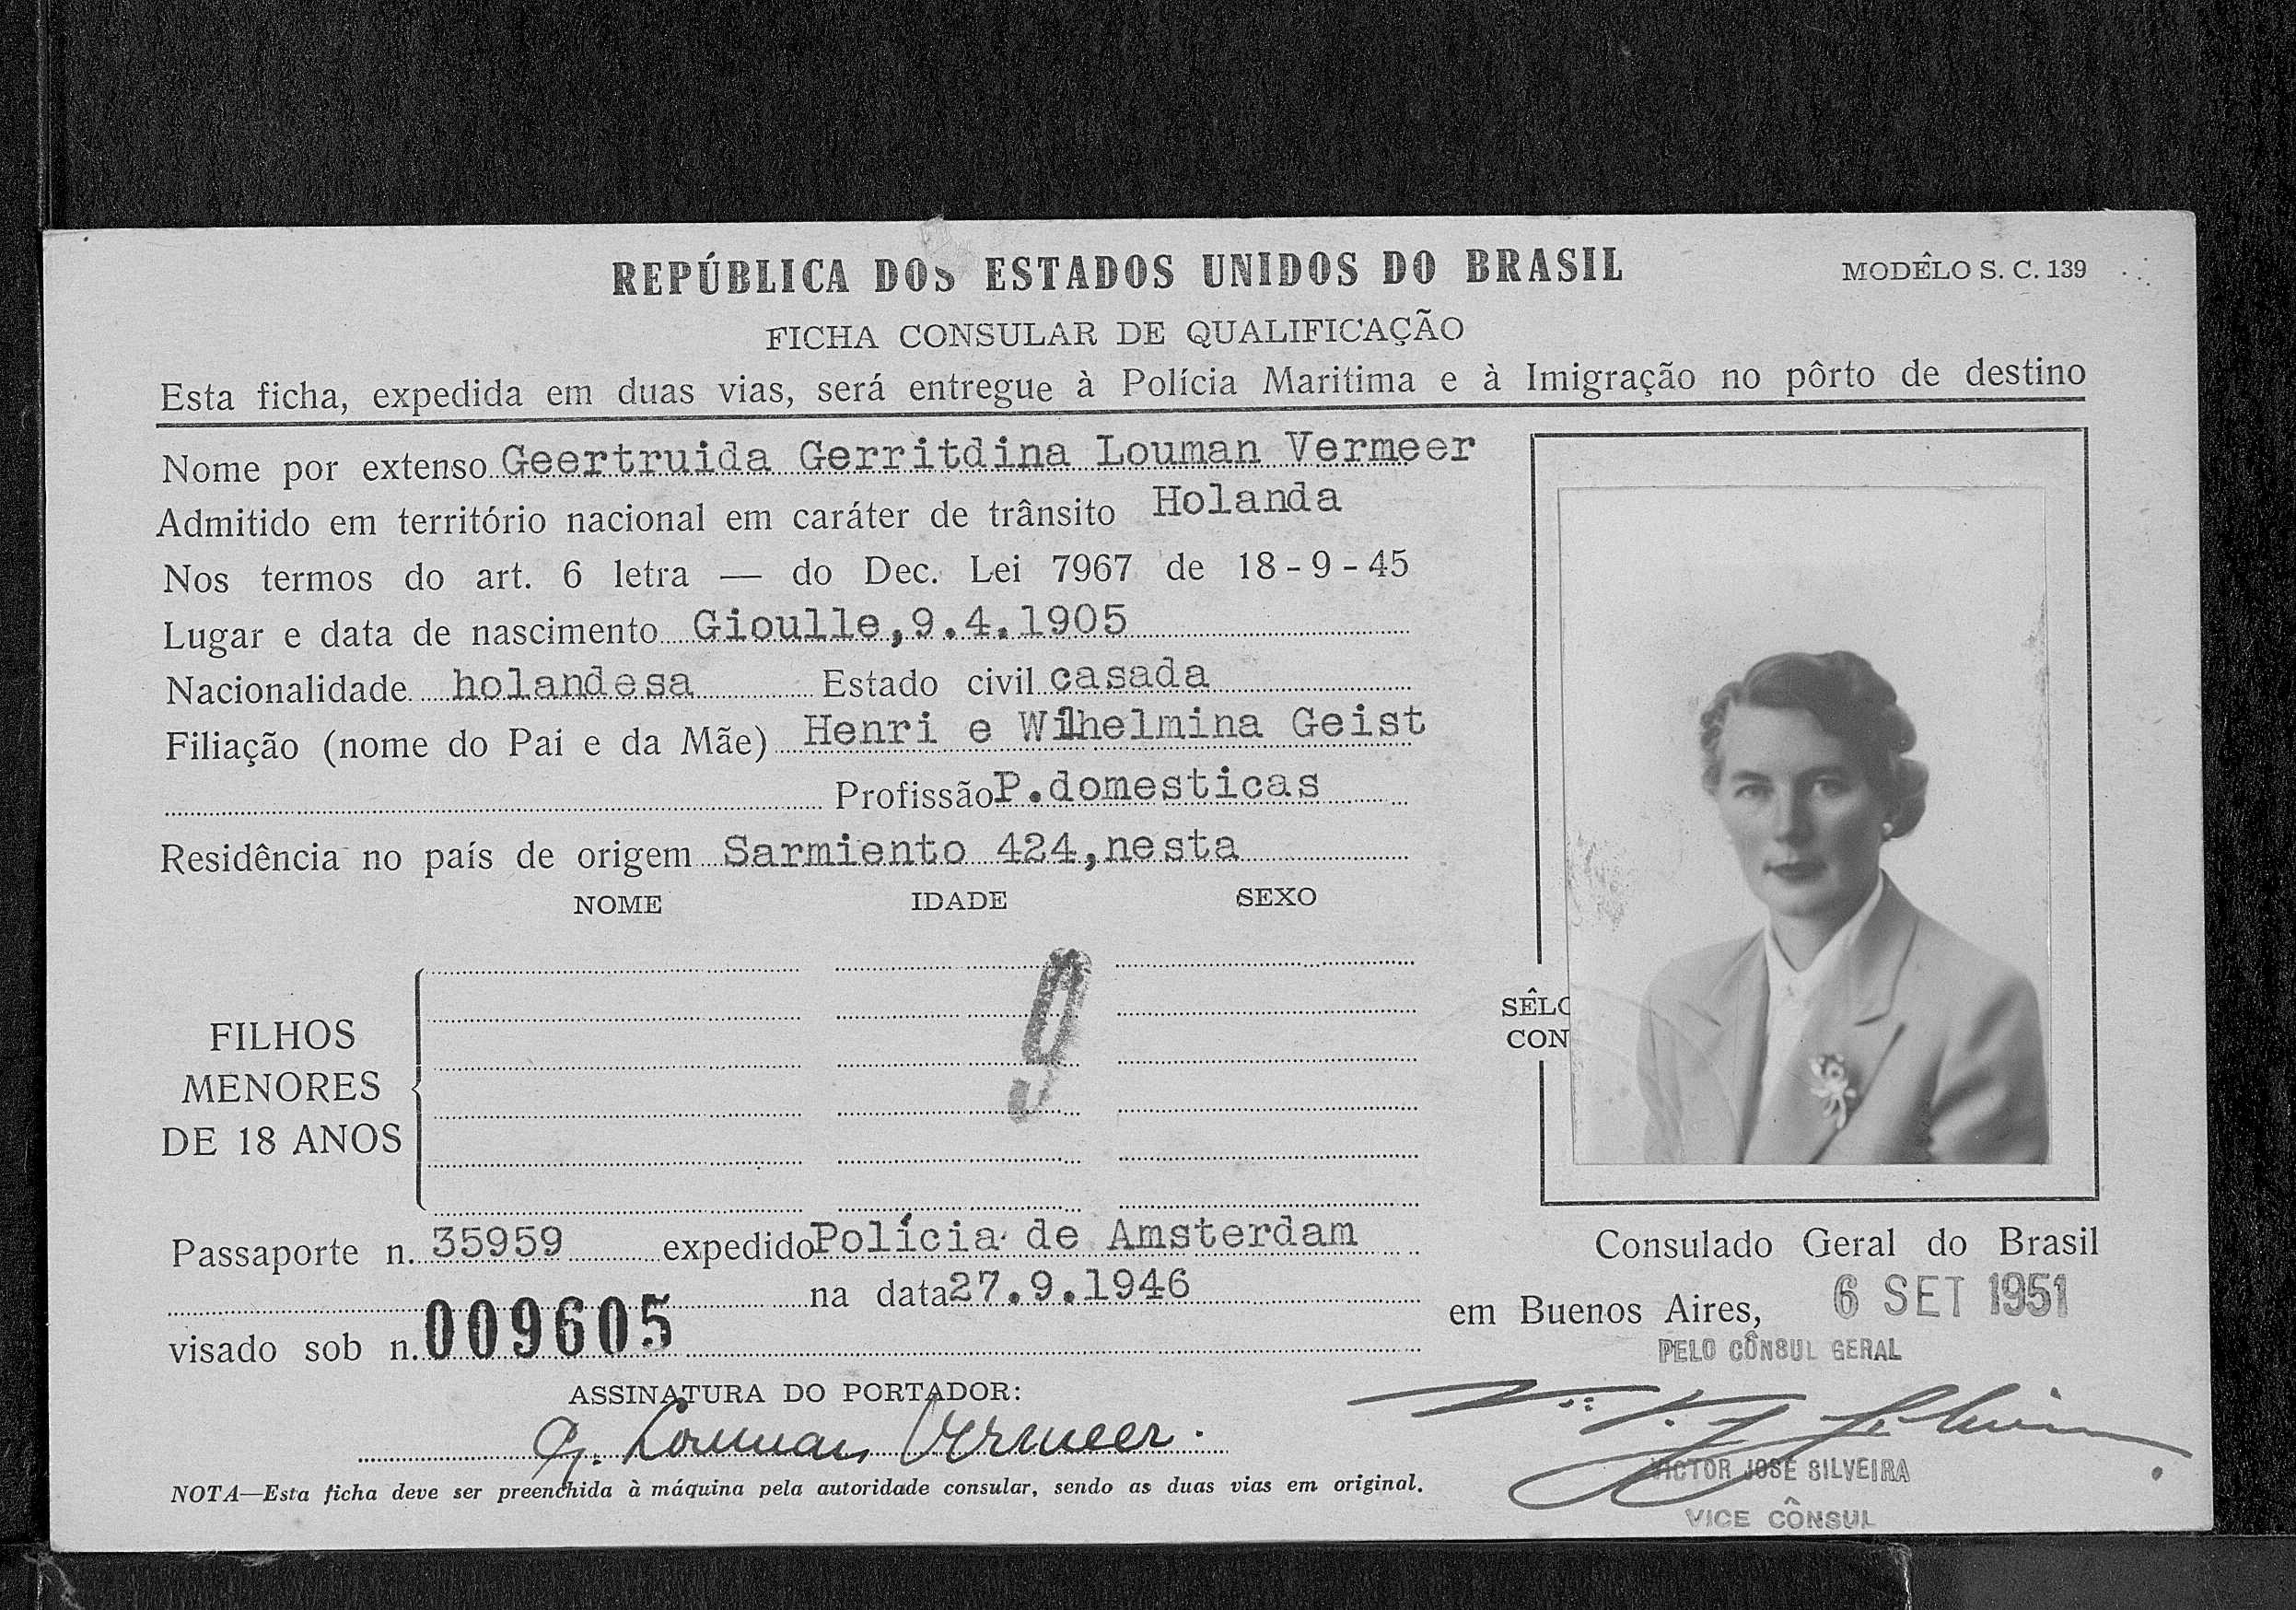 REPÚBLICA DOS ESTADOS UNIDOS DO BRASIL
MODÊLO S. C. 139
FICHA CONSULAR DE QUALIFICAÇÃO
Esta ficha, expedida em duas vias, será entregue à Polícia Maritima e à Imigração no pôrto de destino
Nome por extenso Geertruida Gerritdina Louman Vermeer
Admitido em território nacional em caráter de trânsito Holanda
Nos termos do art. 6 letra — do Dec. Lei 7967 de 18-9-45
Lugar e data de nascimento Gioulle,9.4.1905
Nacionalidade holandesa Estado civil casada
Filiação (nome do Pai e da Mãe) Henri e Wilhelmina Geist
Profissão P.domesticas
Residência no país de origem Sarmiento 424,nesta
NOME IDADE SEXO
FILHOS
MENORES
DE 18 ANOS
SÊLO
CON
Passaporte n. 35959 expedido Polícia de Amsterdam
na data 27.9.1946
visado sob n. 009605
ASSINATURA DO PORTADOR:
G. Louman Vermeer.
NOTA—Esta ficha deve ser preenchida à máquina pela autoridade consular, sendo as duas vias em original.
Consulado Geral do Brasil
em Buenos Aires, 6 SET 1951
PELO CÔNSUL GERAL
VICTOR JOSÉ SILVEIRA
VICE CÔNSUL